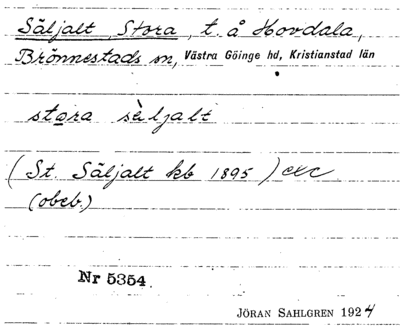 Säljalt, Stora, t. å Hovdala,
Brönnestads sn, Västra Göinge hd, Kristianstad län
stora sàljalt
(St. Säljalt kb 1895)
(obeb.)
Nr 5354.
JÖRAN SAHLGREN 1924